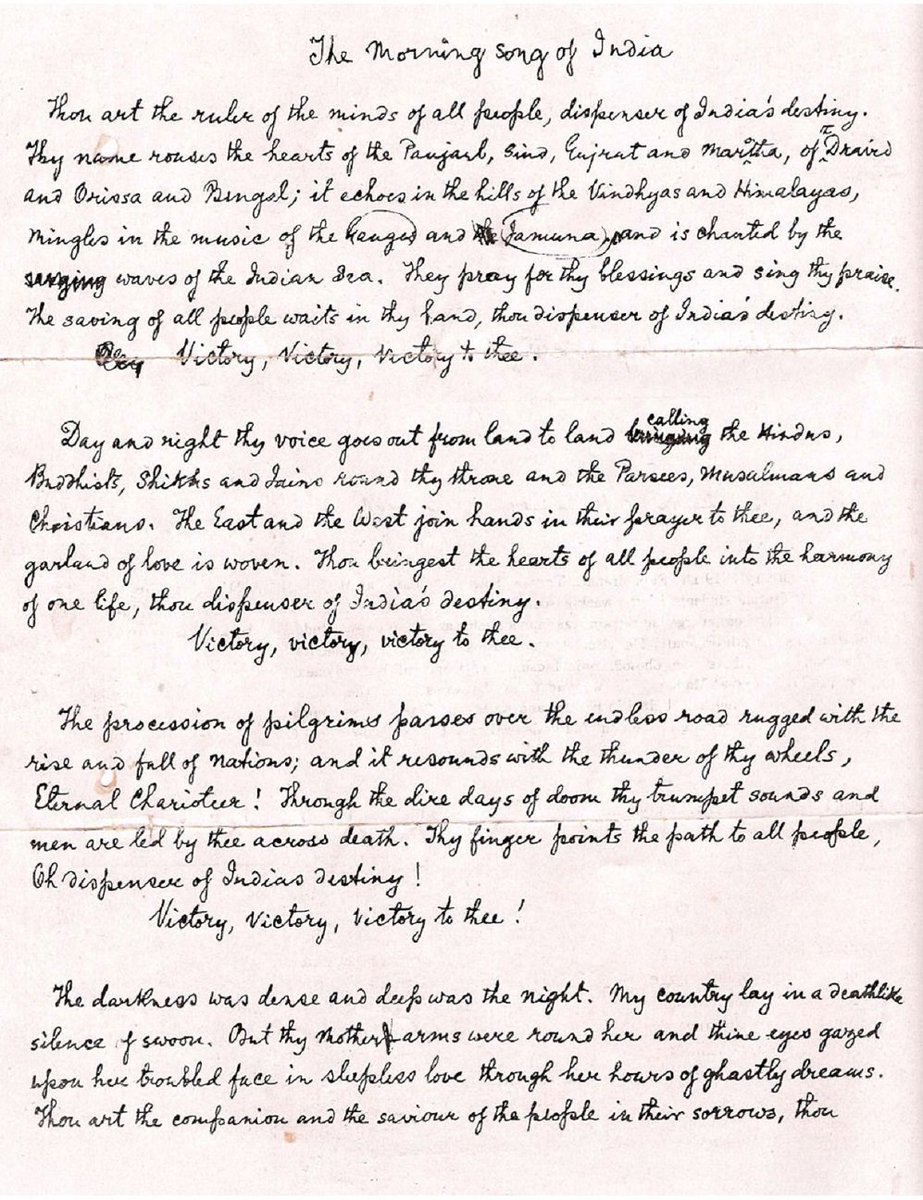 The Morning Song of India
Thou art the ruler of the minds of all people, dispenser of India's destiny.
Thy name rouses the hearts of the Panjaub, Sind, Gujrat and Maratha, of Dravid
and Orissa and Bengal; it echoes in the hills of the Vindhyas and Himalayas,
mingles in the music of the Ganges and Jamuna, and is chanted by the
surging waves of the Indian Sea. They pray for thy blessings and sing thy praise.
The saving of all people waits in thy hand, thou dispenser of India's destiny.
Victory, Victory, Victory to thee.
Day and night thy voice goes out from land to land calling the Hindus,
Buddhists, Shikhs and Jains round thy throne and the Parsees, Musulmans and
Christians. The East and the West join hands in their prayer to thee, and the
garland of love is woven. Thou bringest the hearts of all people into the harmony
of one life, thou dispenser of India's destiny.
Victory, victory, victory to thee.
The procession of pilgrims passes over the endless road rugged with the
rise and fall of Nations; and it resounds with the thunder of thy wheels,
Eternal Charioteer! Through the dire days of doom thy trumpet sounds and
men are led by thee across death. Thy finger points the path to all people,
Oh dispenser of Indias destiny!
Victory, Victory, Victory to thee!
The darkness was dense and deep was the night. My country lay in a deathlike
silence of swoon. But thy Mother arms were round her and thine eyes gazed
upon her troubled face in sleepless love through her hours of ghastly dreams.
Thou art the companion and the saviour of the people in their sorrows, thou